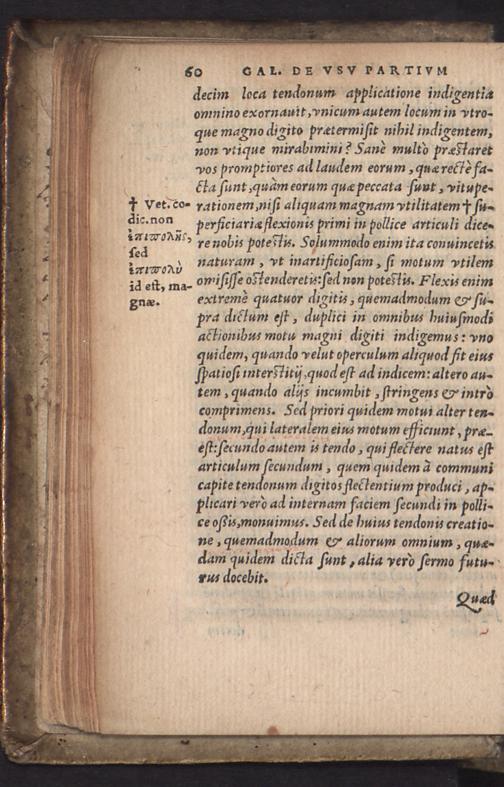 60 GAL. DE VSV PARTIVM
decim loca tendonum applicatione indigentia
omnino exornauit, vnicum autem locum in vtro-
que magno digito prætermisit nihil indigentem,
non vtique mirabimini? Sanè multò præstaret
vos promptiores ad laudem eorum, quæ rectè fa-
cta sunt, quàm eorum quæ peccata sunt, vitupe-
rationem, nisi aliquam magnam vtilitatem † su-
perficiariæ flexionis primi in pollice articuli dice-
re nobis potestis. Solummodo enim ita conuincetis
naturam, vt inartificiosam, si motum vtilem
omisisse ostenderetis: sed non potestis. Flexis enim
extremè quatuor digitis, quemadmodum & su-
pra dictum est, duplici in omnibus huiusmodi
actionibus motu magni digiti indigemus: vno
quidem, quando velut operculum aliquod fit eius
spatiosi interstitij, quod est ad indicem: altero au-
tem, quando alijs incumbit, stringens & intrò
comprimens. Sed priori quidem motui alter ten-
donum, qui lateralem eius motum efficiunt, præ-
est: secundo autem is tendo, qui flectere natus est
articulum secundum, quem quidem à communi
capite tendonum digitos flectentium produci, ap-
plicari verò ad internam faciem secundi in polli-
ce oßis, monuimus. Sed de huius tendonis creatio-
ne, quemadmodum & aliorum omnium, quæ-
dam quidem dicta sunt, alia verò sermo futu-
rus docebit.
Quæd
† Vet. co-
dic. non
ἐπιπολῆς,
sed
ἐπιπολὺ
id est, ma-
gnæ.